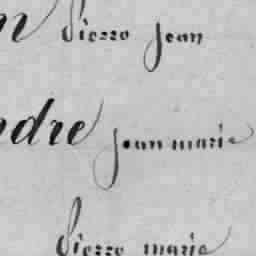 n Pierre Jean
ndre Jean marie
Pierre marie